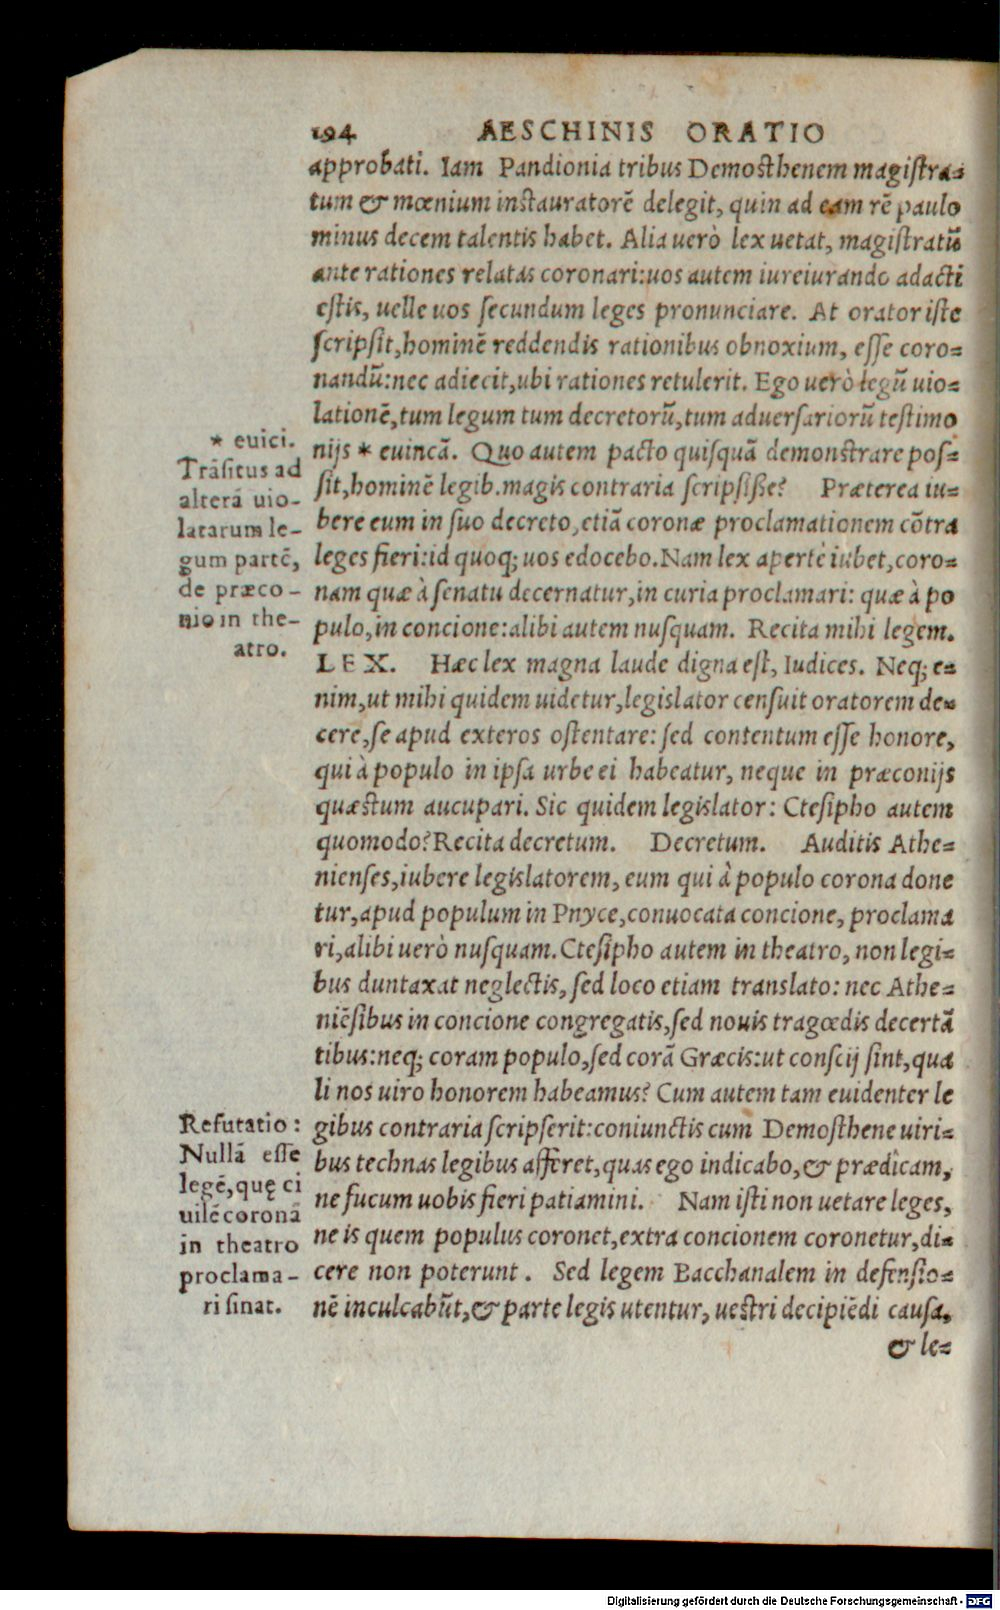 194 AESCHINIS ORATIO
approbati. Iam Pandionia tribus Demosthenem magistra=
tum & mœnium instauratorē delegit, quin ad eam rē paulo
minus decem talentis habet. Alia uerò lex uetat, magistratū
ante rationes relatas coronari: uos autem iureiurando adacti
estis, uelle uos secundum leges pronunciare. At orator iste
scripsit, hominē reddendis rationibus obnoxium, esse coro=
nandū: nec adiecit, ubi rationes retulerit. Ego uerò legū uio=
lationē, tum legum tum decretorū, tum aduersariorū testimo
nijs * euincā. Quo autem pacto quisquā demonstrare pos=
sit, hominē legib. magis contraria scripsiße? Præterea iu=
bere eum in suo decreto, etiā coronæ proclamationem cōtra
leges fieri: id quoq; uos edocebo. Nam lex apertè iubet, coro=
nam quæ à senatu decernatur, in curia proclamari: quæ à po
pulo, in concione: alibi autem nusquam. Recita mihi legem.
LEX. Hæc lex magna laude digna est, Iudices. Neq; e=
nim, ut mihi quidem uidetur, legislator censuit oratorem de=
cere, se apud exteros ostentare: sed contentum esse honore,
qui à populo in ipsa urbe ei habeatur, neque in præconijs
quæstum aucupari. Sic quidem legislator: Ctesipho autem
quomodo? Recita decretum. Decretum. Auditis Athe=
nienses, iubere legislatorem, eum qui à populo corona done
tur, apud populum in Pnyce, conuocata concione, proclama
ri, alibi uerò nusquam. Ctesipho autem in theatro, non legi=
bus duntaxat neglectis, sed loco etiam translato: nec Athe=
niēsibus in concione congregatis, sed nouis tragœdis decertā
tibus: neq; coram populo, sed corā Græcis: ut conscij sint, qua
li nos uiro honorem habeamus? Cum autem tam euidenter le
gibus contraria scripserit: coniunctis cum Demosthene uiri=
bus technas legibus afferet, quas ego indicabo, & prædicam,
ne fucum uobis fieri patiamini. Nam isti non uetare leges,
ne is quem populus coronet, extra concionem coronetur, di=
cere non poterunt. Sed legem Bacchanalem in defensio=
nē inculcabūt, & parte legis utentur, uestri decipiēdi causa,
& le=
* euici.
Trāsitus ad
alterā uio-
latarum le-
gum partē,
de præco-
nio in the-
atro.
Refutatio:
Nullā esse
legē, quę ci
uilē coronā
in theatro
proclama-
ri sinat.
Digitalisierung gefördert durch die Deutsche Forschungsgemeinschaft - DFG